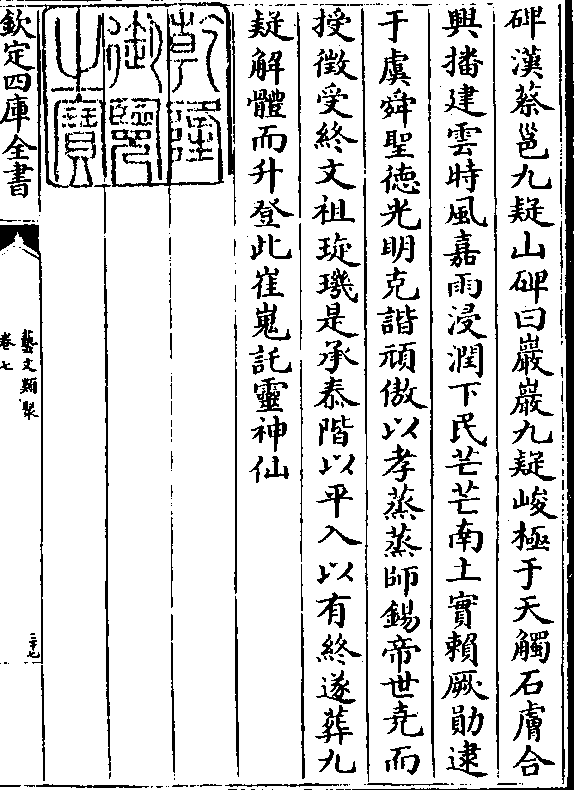 碑漢蔡邕九疑山碑曰巖巖九疑峻極于天觸石膚合
興播建雲時風嘉雨浸潤下民芒芒南土實賴厥勛逮
于虞舜聖德光明克諧頑傲以孝蒸蒸師錫帝世堯而
授徵受終文祖琁璣是承泰階以平入以有終遂葬九
疑解體而升登此崔嵬託靈神仙
乾隆
御覽
之寶
欽定四庫全書
藝文類聚
卷七
二十七